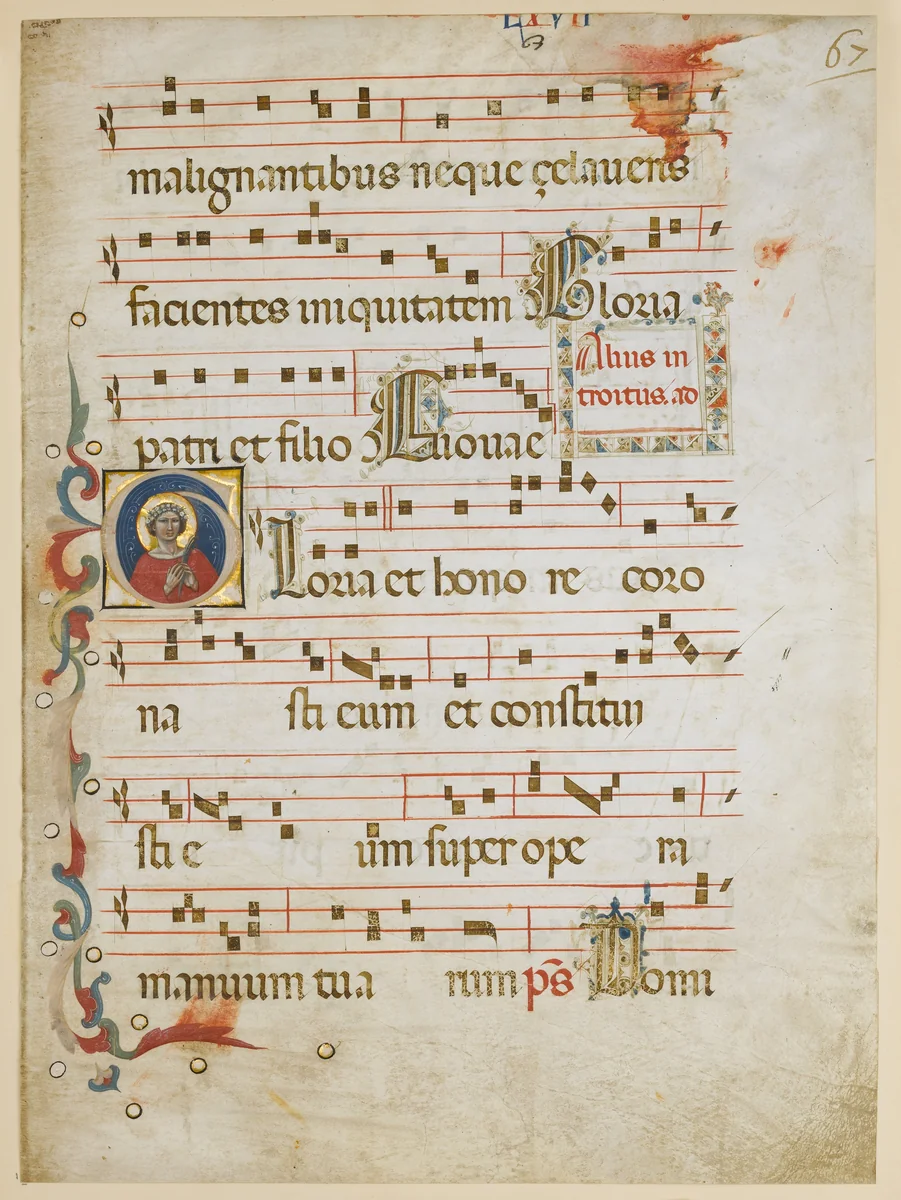 LXVII
67
67
malignantibus neque çelaveris
facientes iniquitatem Gloria
patri et filio Euouae
Alius in
troitus. ad
Loria et hono re coro
na sti eum et constitui
sti e um super ope ra
manuum tua rum ps̄ Domi